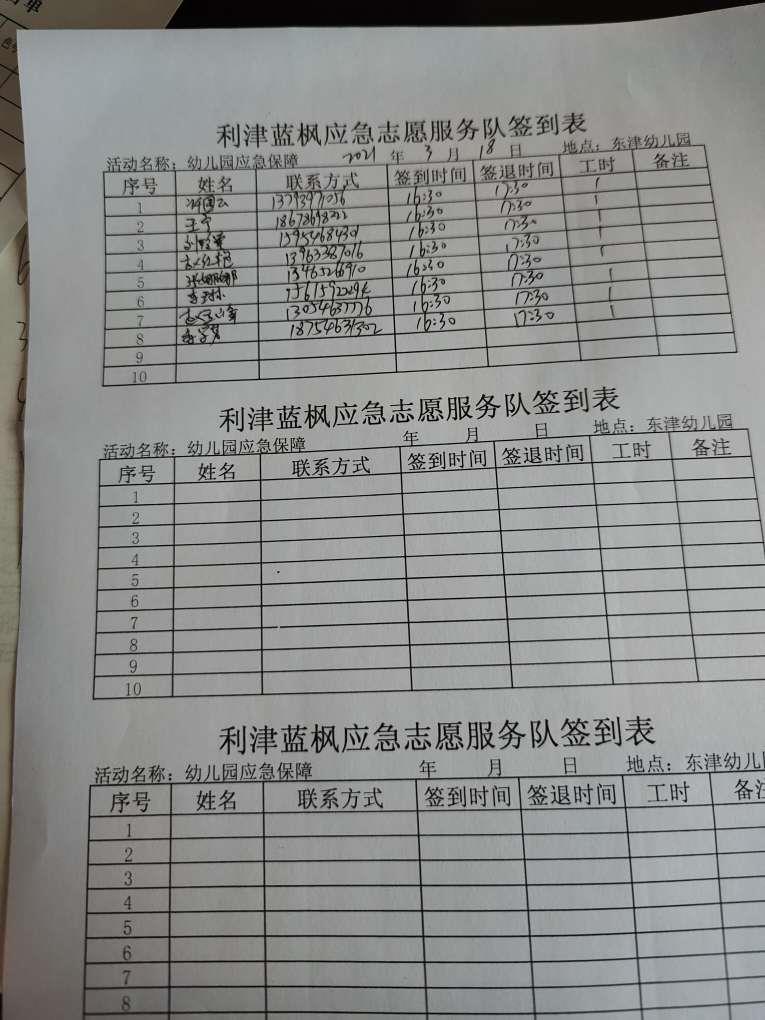 利津蓝枫应急志愿服务队签到表
活动名称：幼儿园应急保障 2021 年 3 月 18 日 地点：东津幼儿园
序号 姓名 联系方式 签到时间 签退时间 工时 备注
1 16:30 17:30 1
2 王宁 18678698222 16:30 17:30 1
3 13954684301 16:30 17:30 1
4 13963387016 16:30 17:30 1
5 13465266910 16:30 17:30
6 16:30 17:30 1
7 13054637776 16:30 17:30 1
8 18754631302 16:30 17:30 1
9
10
利津蓝枫应急志愿服务队签到表
活动名称：幼儿园应急保障 年 月 日 地点：东津幼儿园
序号 姓名 联系方式 签到时间 签退时间 工时 备注
1
2
3
4
5
6
7
8
9
10
利津蓝枫应急志愿服务队签到表
活动名称：幼儿园应急保障 年 月 日 地点：东津幼儿
序号 姓名 联系方式 签到时间 签退时间 工时 备注
1
2
3
4
5
6
7
8